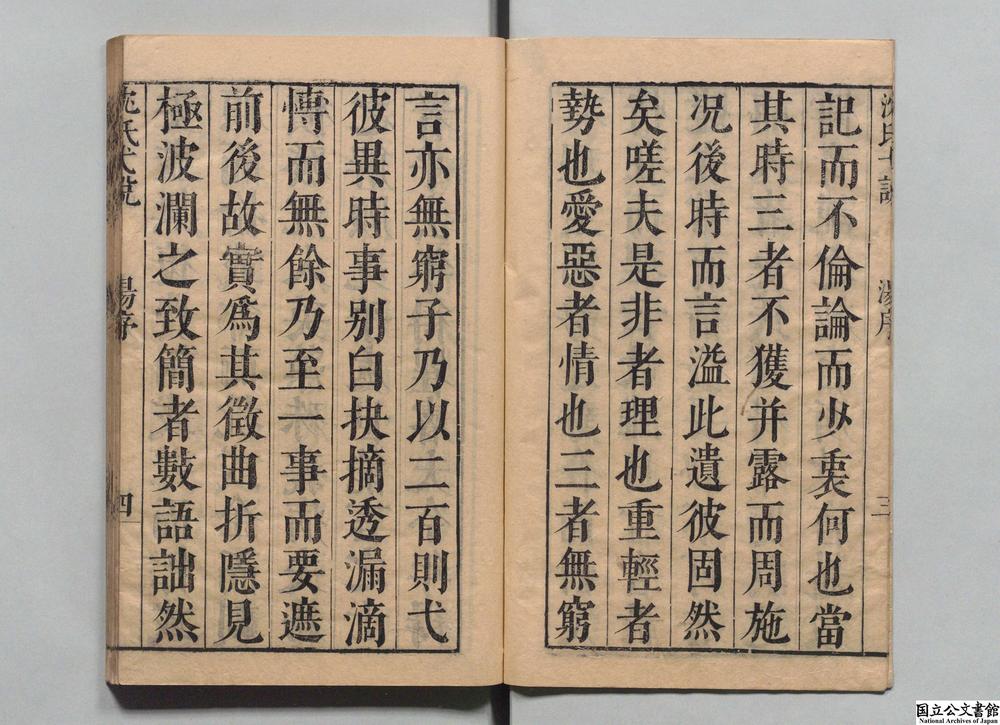 記而不倫論而少裏何也當
其時三者不獲并露而周施
况後時而言溢此遺彼固然
矣嗟夫是非者理也重輕者
勢也愛惡者情也三者無窮
三
言亦無窮子乃以二百則弋
彼異時事别白抉摘透漏滴
慱而無餘乃至一事而要遮
前後故實爲其徵曲折隱見
極波瀾之致簡者數語詘然
沈氏弋說
湯序
四
国立公文書館
National Archives of Japan